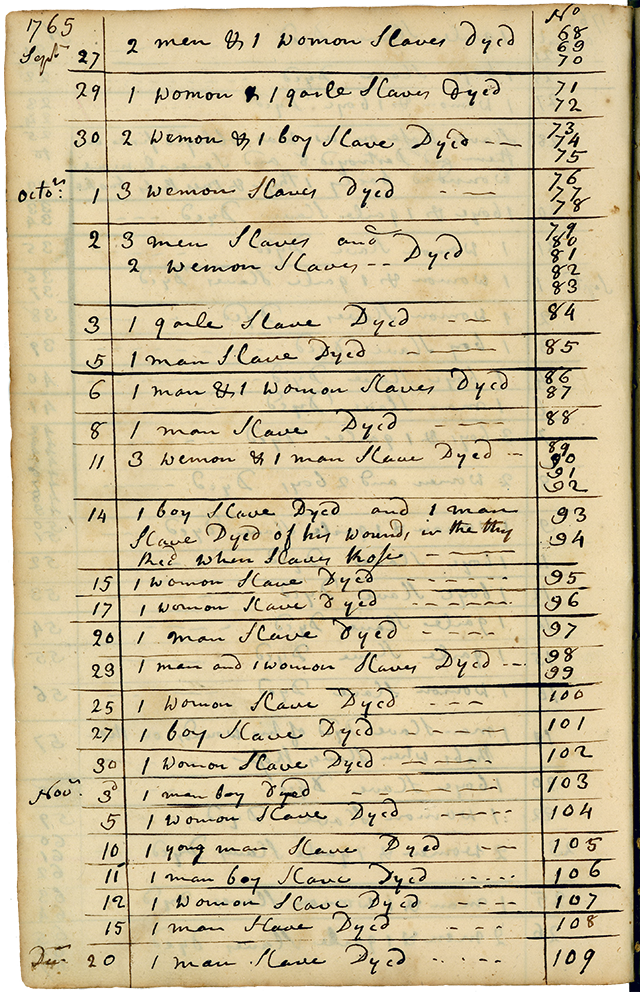 1765
No
Sepr 27 2 men & 1 womon Slaves Dyed 68 69 70
29 1 womon & 1 garle Slaves Dyed 71 72
30 2 wemon & 1 boy Slave Dyed 73 74 75
Octor: 1 3 wemon Slaves Dyed 76 77 78
2 3 men Slaves and 79 80 81
2 wemon Slaves -- Dyed 82 83
3 1 garle Slave Dyed 84
5 1 man Slave Dyed 85
6 1 man & 1 Womon Slaves Dyed 86 87
8 1 man Slave Dyed 88
11 3 wemon & 1 man Slave Dyed 89 90 91 92
14 1 boy Slave Dyed and 1 man 93
Slave Dyed of his wounds in the thy 94
when Slaves Rose
15 1 womon Slave Dyed 95
17 1 womon Slave Dyed 96
20 1 man Slave Dyed 97
23 1 man and 1 womon Slaves Dyed 98 99
25 1 Womon Slave Dyed 100
27 1 boy Slave Dyed 101
30 1 Womon Slave Dyed 102
Novr: 3d 1 man boy Dyed 103
5 1 Womon Slave Dyed 104
10 1 yong man Slave Dyed 105
11 1 man boy Slave Dyed 106
12 1 Womon Slave Dyed 107
15 1 man Slave Dyed 108
20 1 man Slave Dyed 109